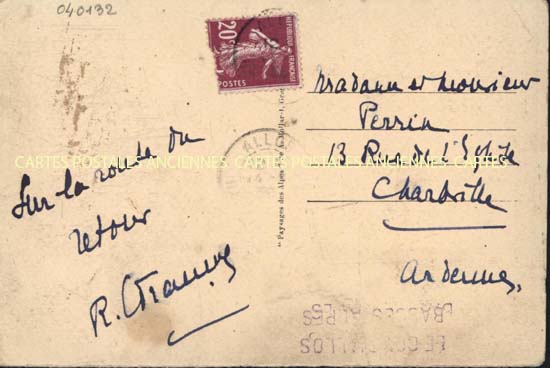 040132
20c
REPUBLIQUE FRANÇAISE
POSTES
Sur la route du
retour
Madame et Monsieur
Perrin
13 Rue de l'
Charleville
Ardennes
ALLO
"Paysages des Alpes
CARTES POSTALES ANCIENNES CARTES POSTALES ANCIENNES CARTES POSTALES ANCIENNES
LE COL D'ALLOS
BASSES ALPES